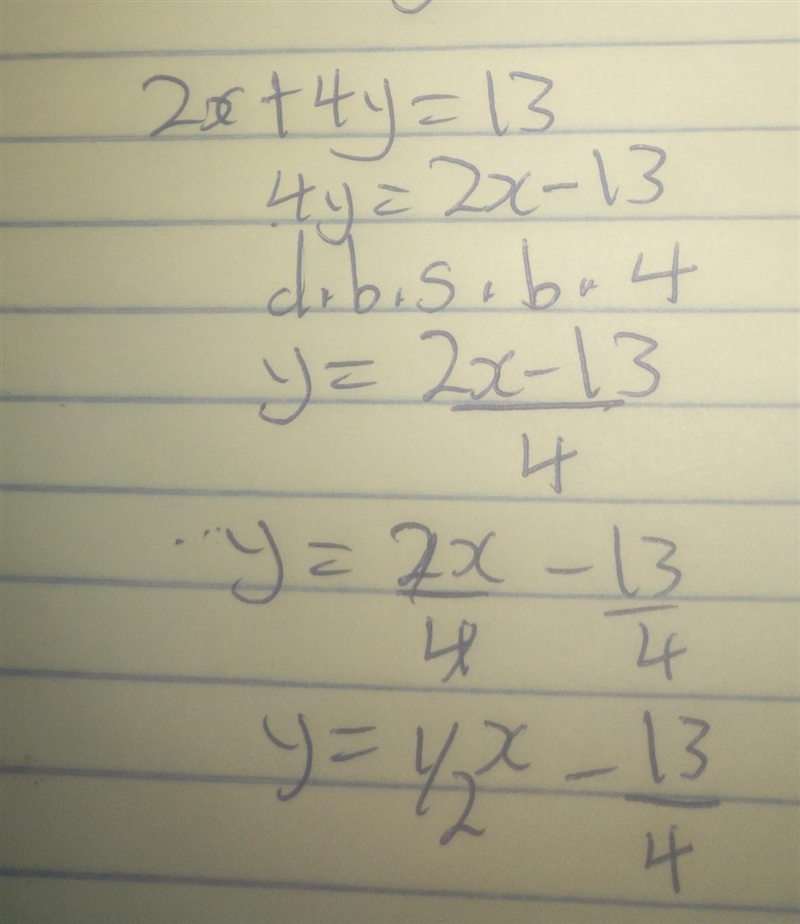 2x+4y=13
4y=2x-13
d.b.s.b.4
y=2x-13
4
y=2x-13
4 4
y=1/2x-13
4